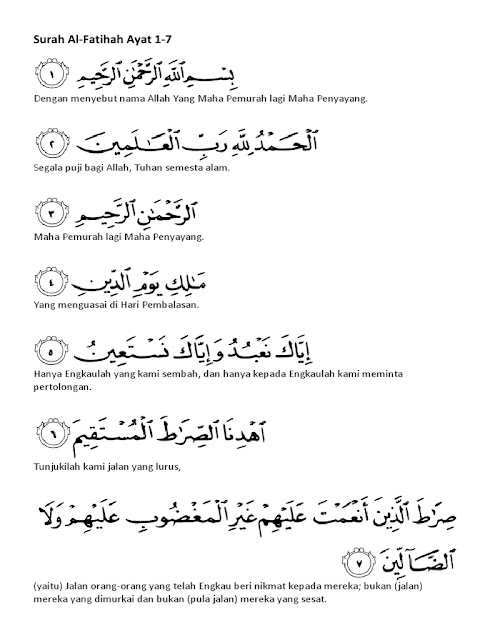 Surah Al-Fatihah Ayat 1-7
بِسْمِ ٱللَّهِ ٱلرَّحْمَٰنِ ٱلرَّحِيمِ ١
Dengan menyebut nama Allah Yang Maha Pemurah lagi Maha Penyayang.
ٱلْحَمْدُ لِلَّهِ رَبِّ ٱلْعَٰلَمِينَ ٢
Segala puji bagi Allah, Tuhan semesta alam.
ٱلرَّحْمَٰنِ ٱلرَّحِيمِ ٣
Maha Pemurah lagi Maha Penyayang.
مَٰلِكِ يَوْمِ ٱلدِّينِ ٤
Yang menguasai di Hari Pembalasan.
إِيَّاكَ نَعْبُدُ وَإِيَّاكَ نَسْتَعِينُ ٥
Hanya Engkaulah yang kami sembah, dan hanya kepada Engkaulah kami meminta
pertolongan.
ٱهْدِنَا ٱلصِّرَٰطَ ٱلْمُسْتَقِيمَ ٦
Tunjukilah kami jalan yang lurus,
صِرَٰطَ ٱلَّذِينَ أَنْعَمْتَ عَلَيْهِمْ غَيْرِ ٱلْمَغْضُوبِ عَلَيْهِمْ وَلَا
ٱلضَّآلِّينَ ٧
(yaitu) Jalan orang-orang yang telah Engkau beri nikmat kepada mereka; bukan (jalan)
mereka yang dimurkai dan bukan (pula jalan) mereka yang sesat.